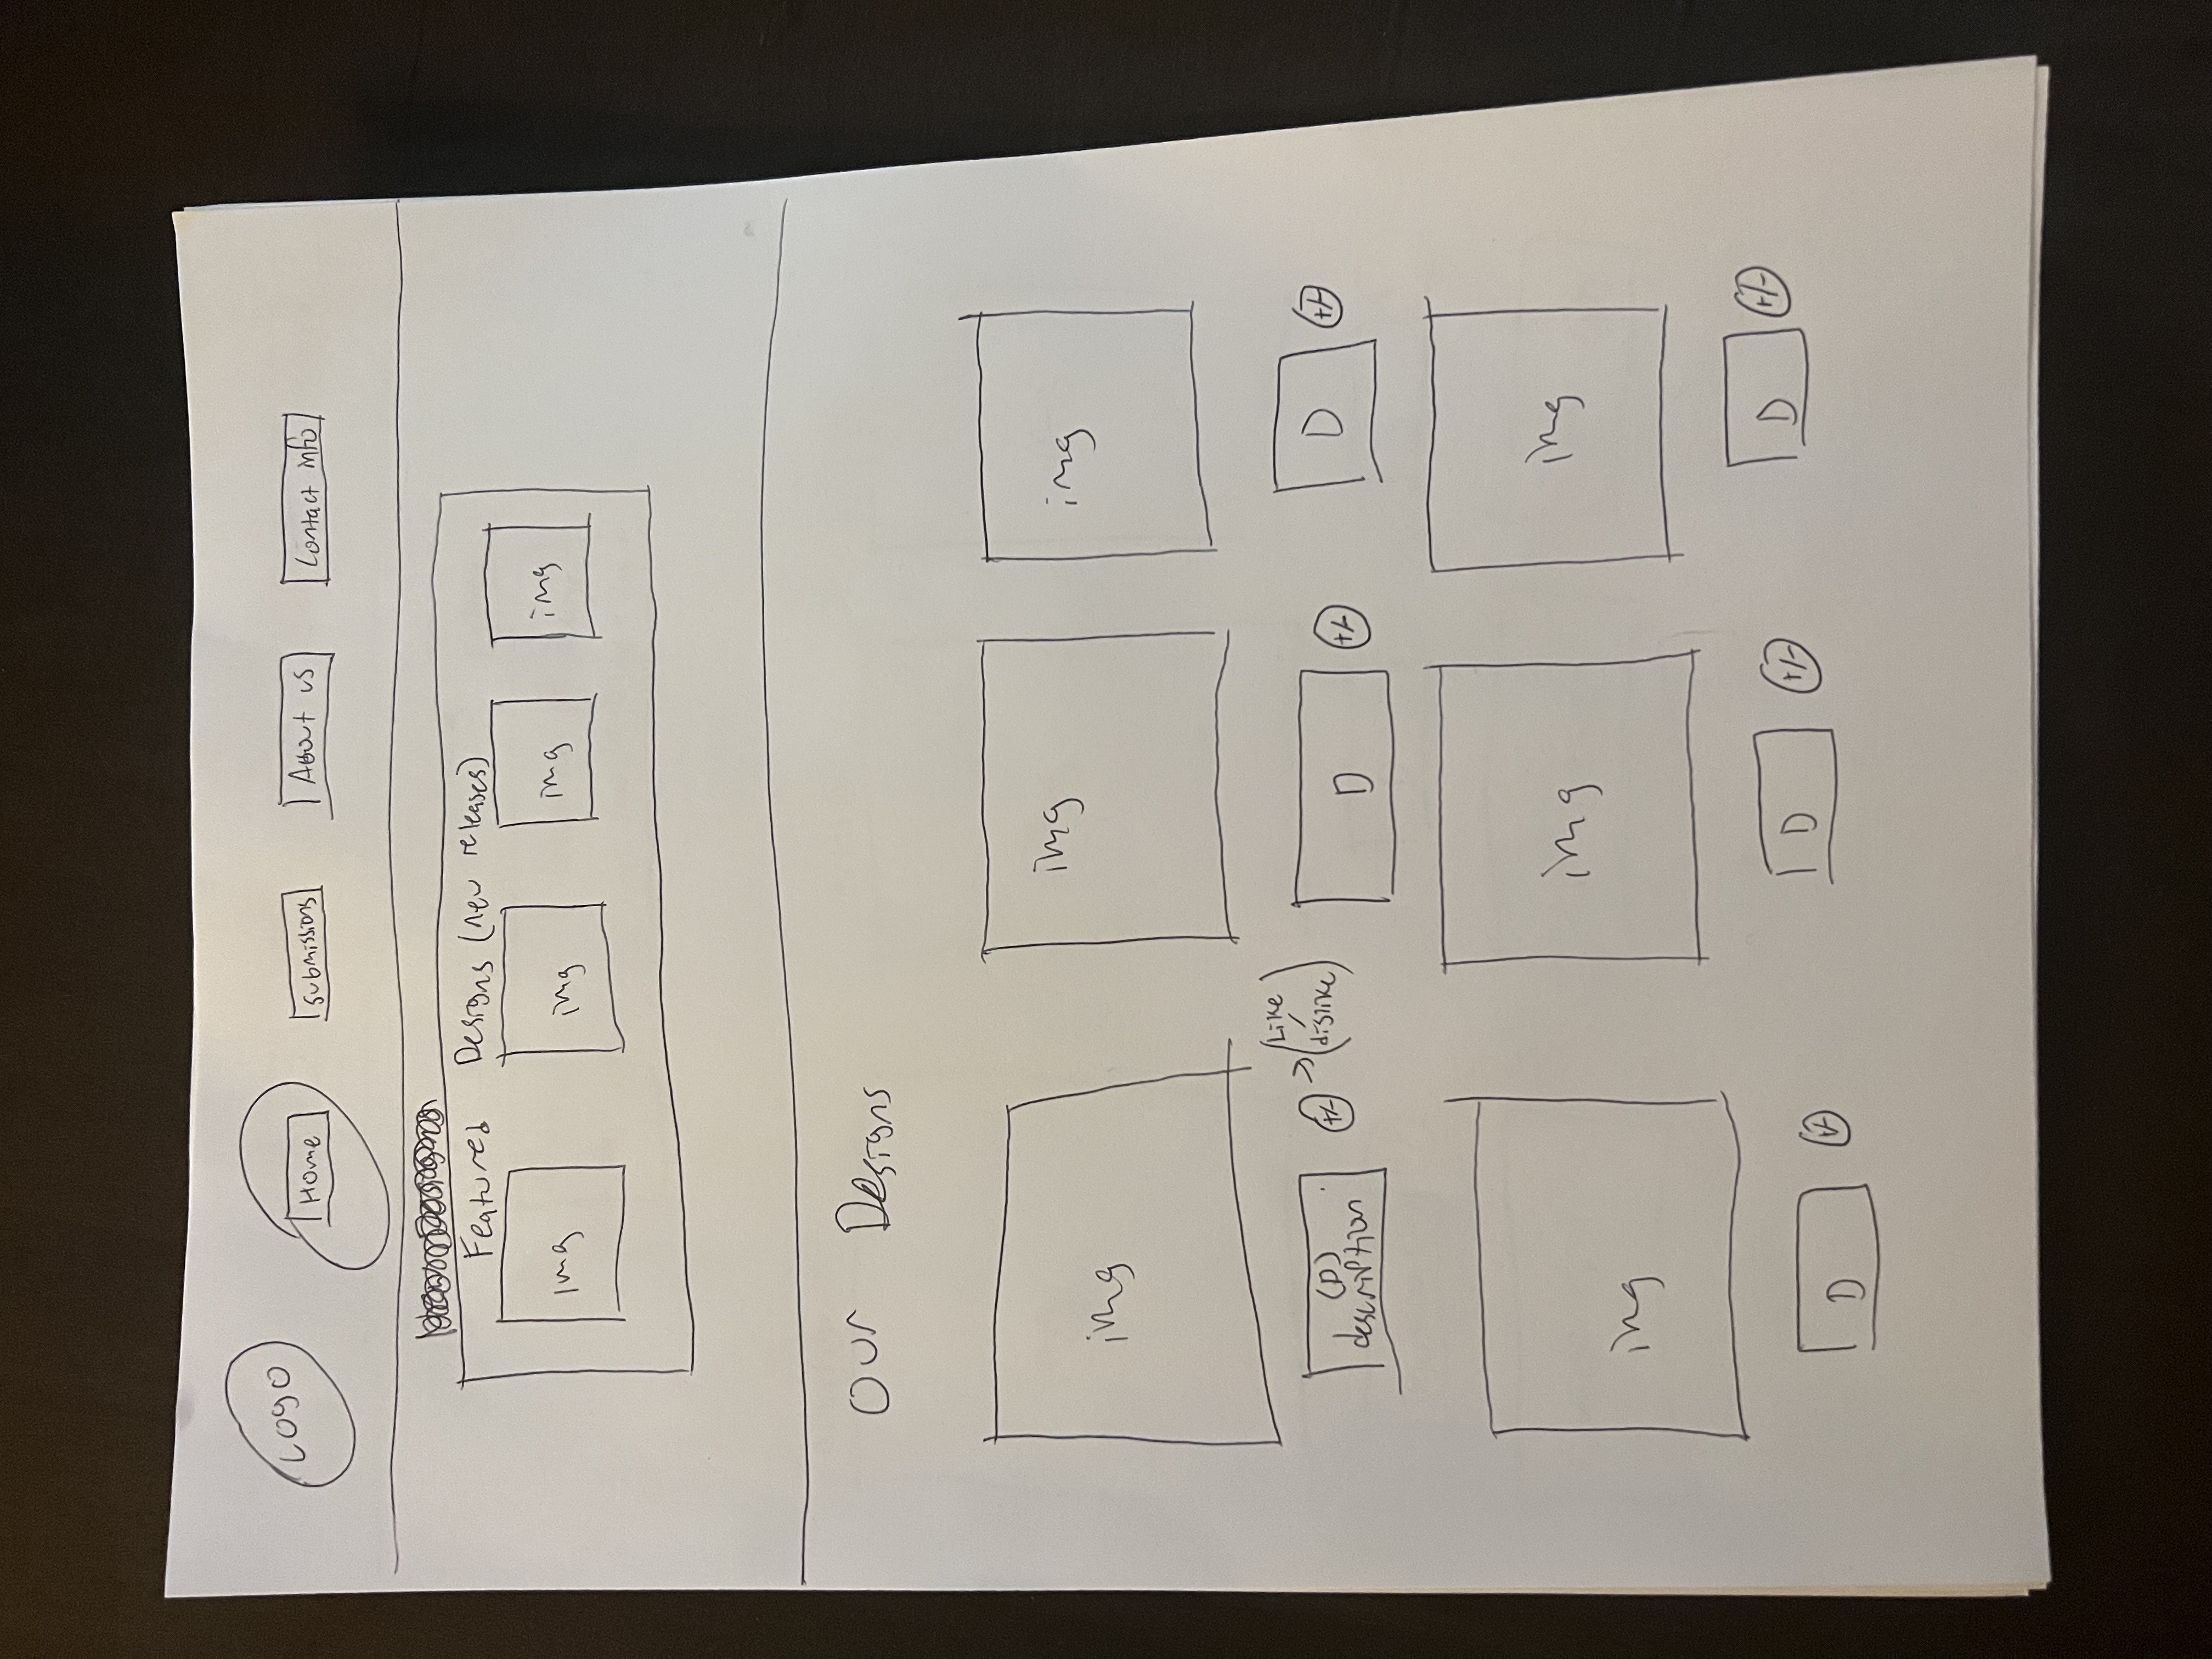 Logo
Home
Submissions
About us
Contact info
Featured Designs (new releases)
img
img
img
img
Our Designs
img
img
img
(D)
description
+/-
→
(Like
/
dislike)
D
+/-
D
+/-
img
img
img
D
+/-
D
+/-
D
+/-